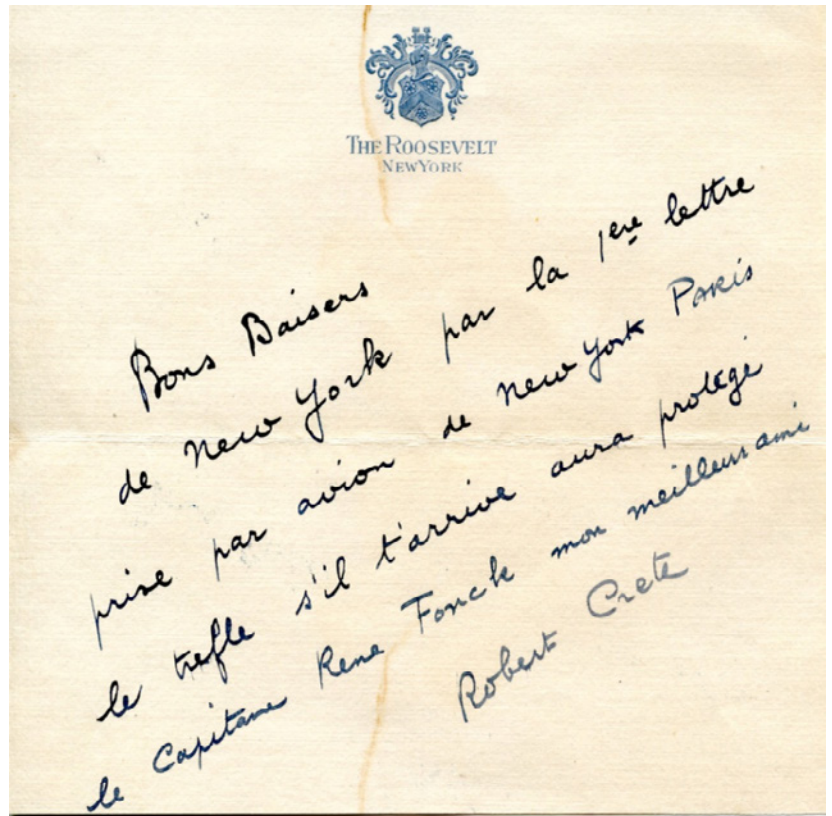 THE ROOSEVELT
NEW YORK
Bons Baisers
de New York par la 1ere lettre
prise par avion de New York PARIS
le trefle s'il t'arrive aura protégé
le Capitane Rene Fonck mon meilleur ami
Robert Crete